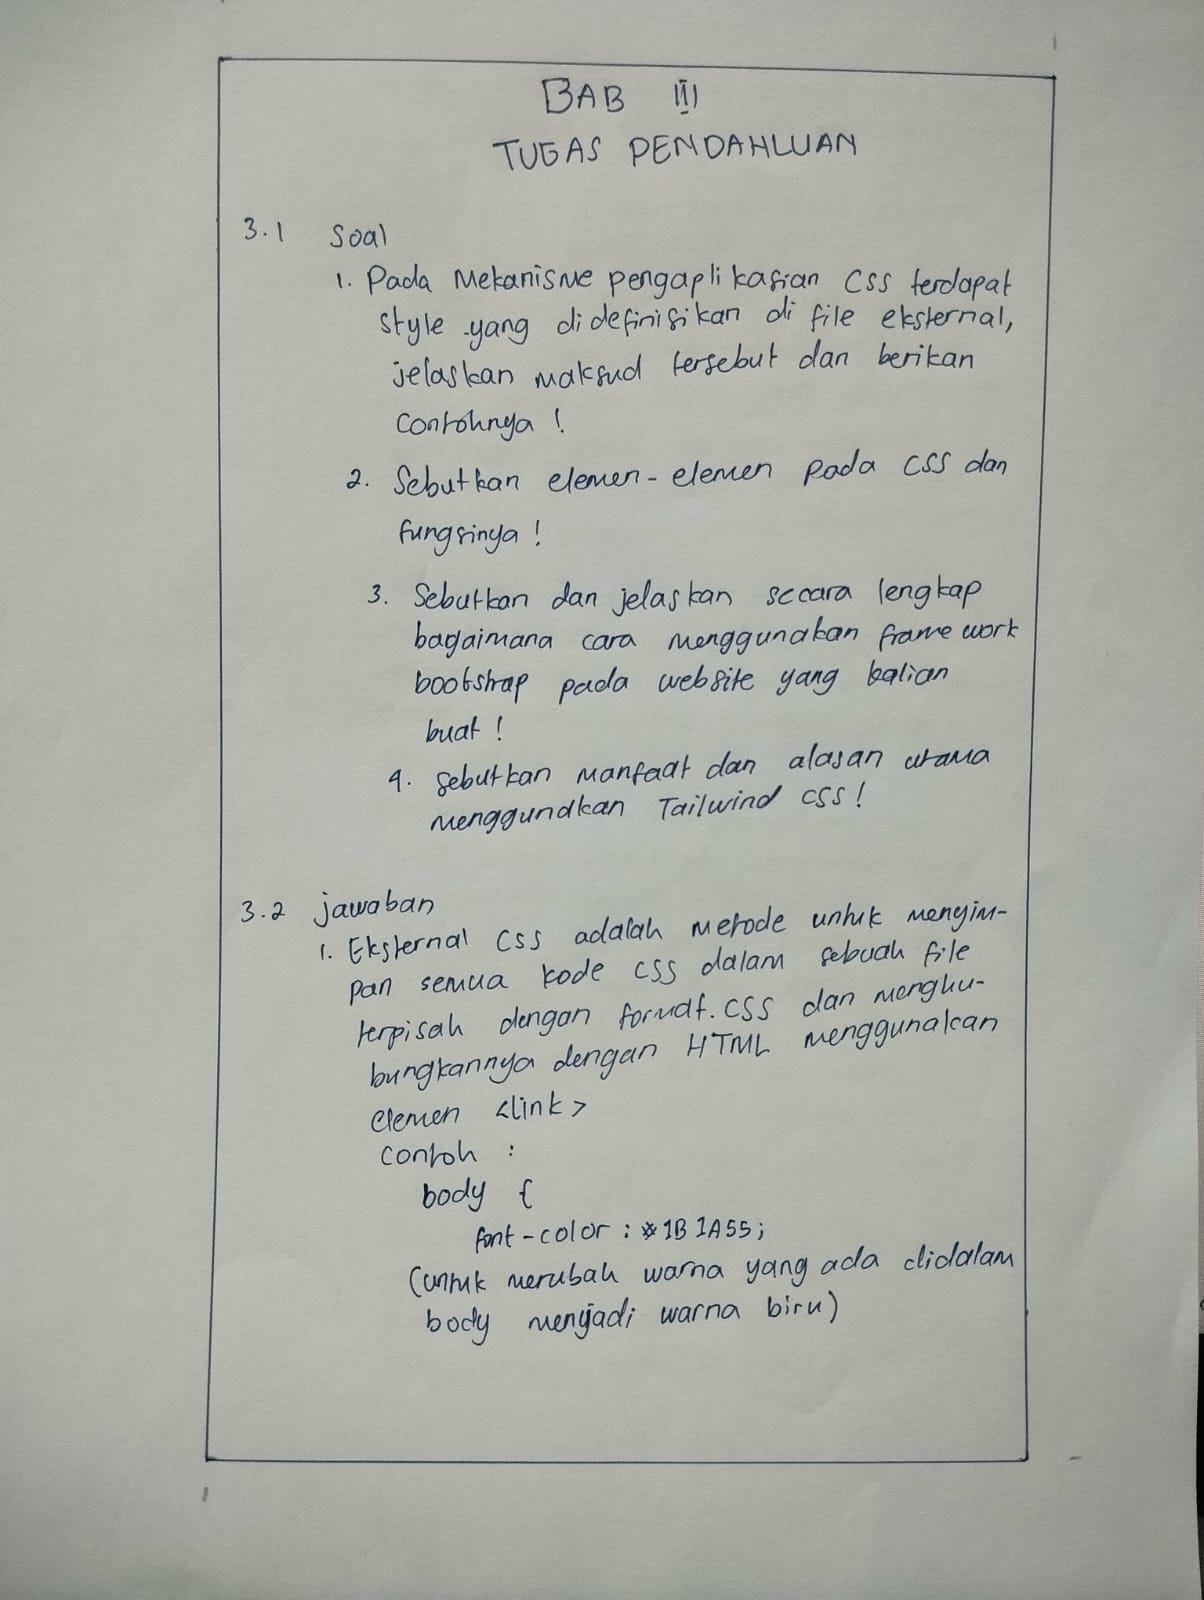 BAB III
TUGAS PENDAHLUAN
3.1 Soal
1. Pada Mekanisme pengaplikasian CSS terdapat
style yang didefinisikan di file eksternal,
jelaskan maksud tersebut dan berikan
Contohnya !
2. Sebutkan elemen-elemen pada CSS dan
fungsinya !
3. Sebutkan dan jelaskan secara lengkap
bagaimana cara menggunakan frame work
bootstrap pada website yang kalian
buat !
4. Sebutkan manfaat dan alasan utama
menggunakan Tailwind CSS !
3.2 jawaban
1. Eksternal CSS adalah metode untuk menyim-
pan semua kode CSS dalam sebuah file
terpisah dengan format.CSS dan menghu-
bungkannya dengan HTML menggunakan
elemen <link>
contoh :
body {
font-color : #1B1A55;
(untuk merubah warna yang ada didalam
body menjadi warna biru)